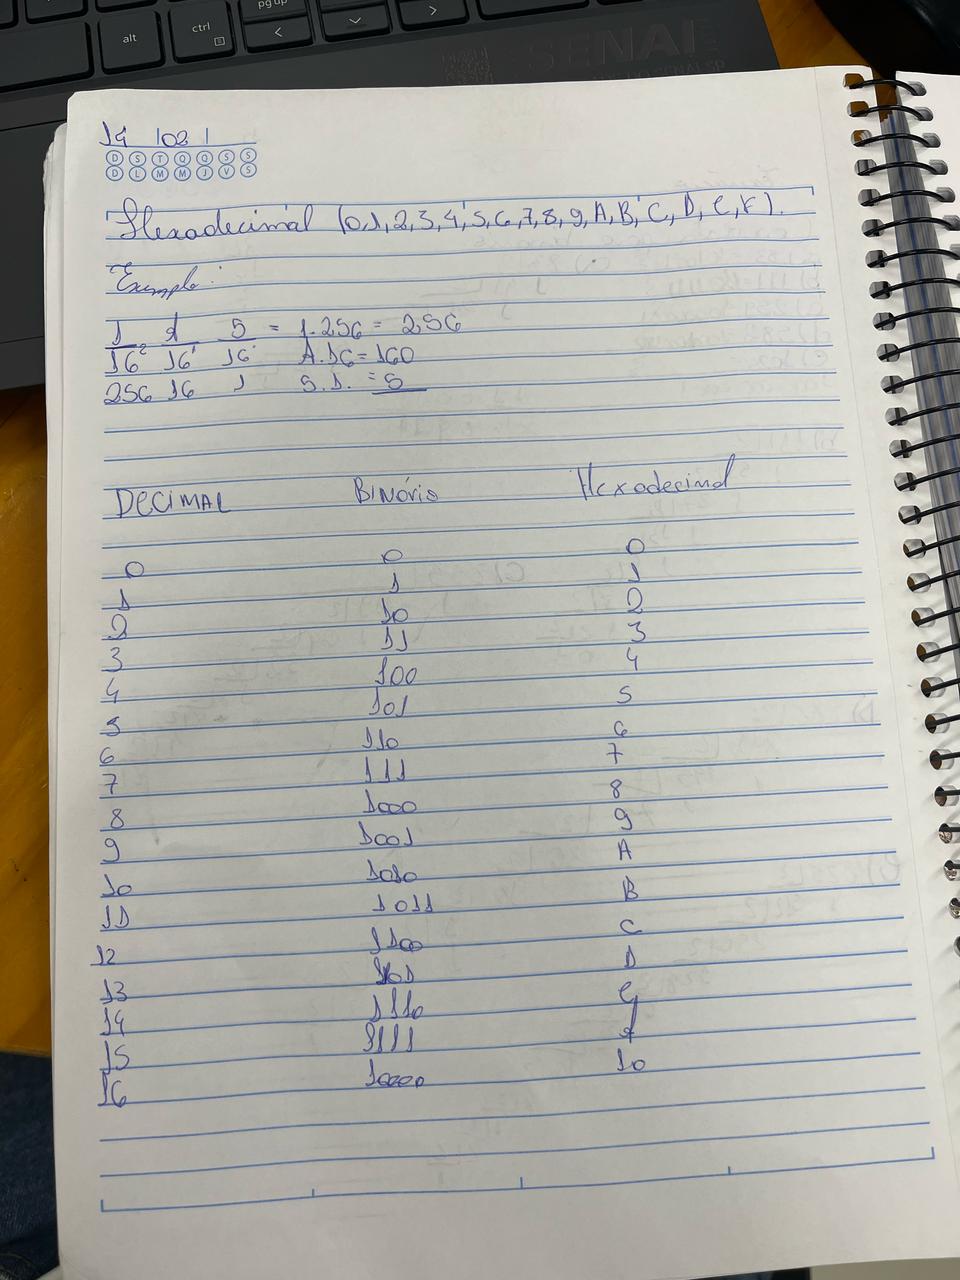 pg up
alt
ctrl
SENAI
14 | 02 |
D S T Q Q S S
D L M M J V S
Hexadecimal (0,1,2,3,4,5,6,7,8,9,A,B,C,D,E,F).
Exemplo:
1 A 5 = 1.256 = 256
16² 16¹ 16⁰ A.16 = 160
256 16 1 5.1. = 5
DECIMAL Binário Hexadecimal
0 0 0
1 1 1
2 10 2
3 11 3
4 100 4
5 101 5
6 110 6
7 111 7
8 1000 8
9 1001 9
10 1010 A
11 1011 B
12 1100 C
13 1101 D
14 1110 E
15 1111 F
16 10000 10